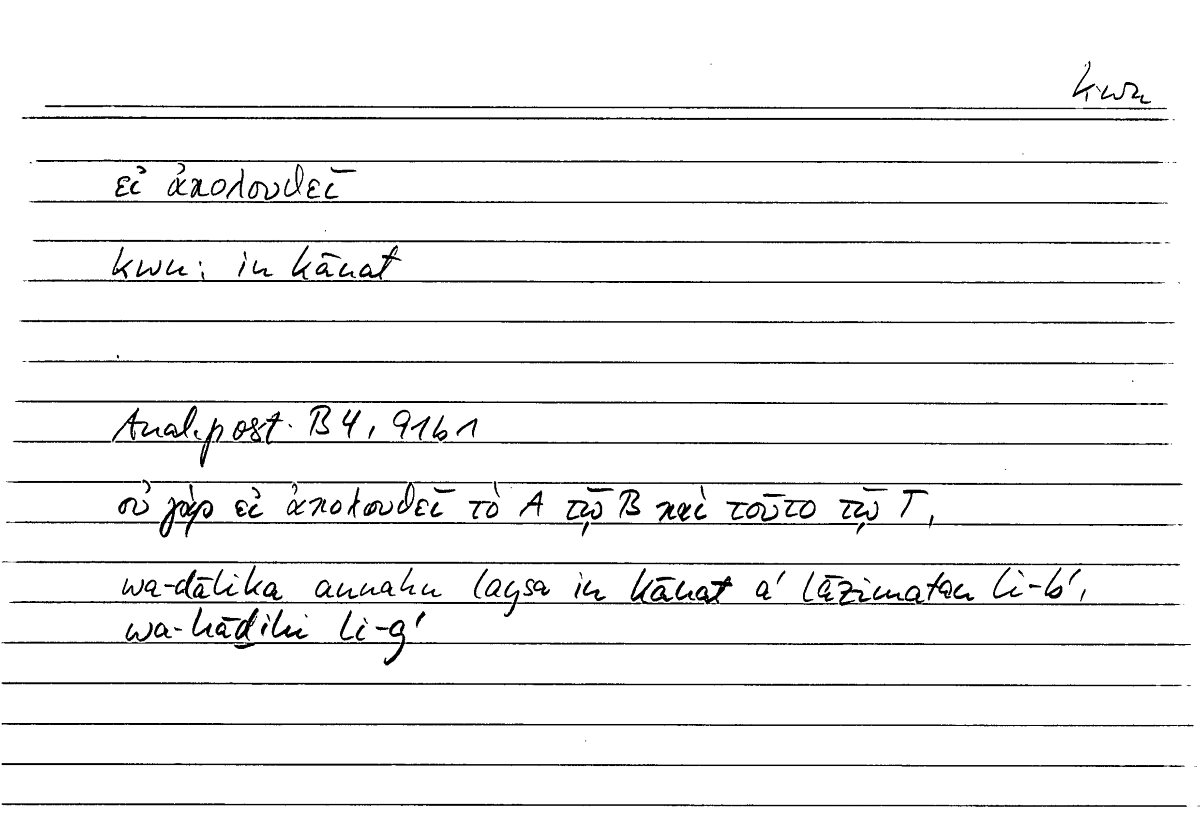 kwn
εἰ ἀκολουθεῖ
kwn: in kānat
Anal. post. B 4, 91b1
οὐ γὰρ εἰ ἀκολουθεῖ τὸ A τῷ B καὶ τοῦτο τῷ Γ,
wa-dālika annahu laysa in kānat a' lāzimatan li-b',
wa-hāḏihi li-g'